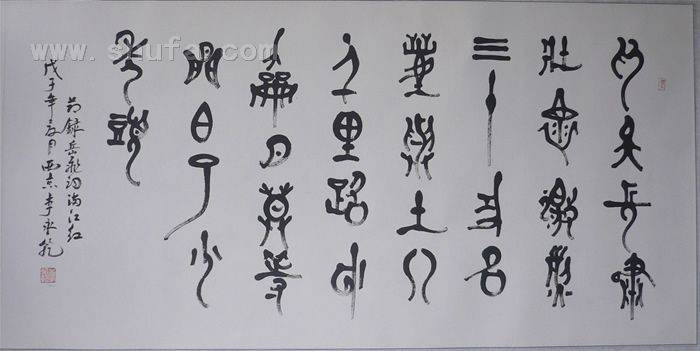 仰天長嘯
壯懷激烈
三十功名
塵與土八
千里路云
龢月莫等
閒白了少
年頭
節録岳飛詞滿江紅
戊子年月西京李永乾
www.shufa.com